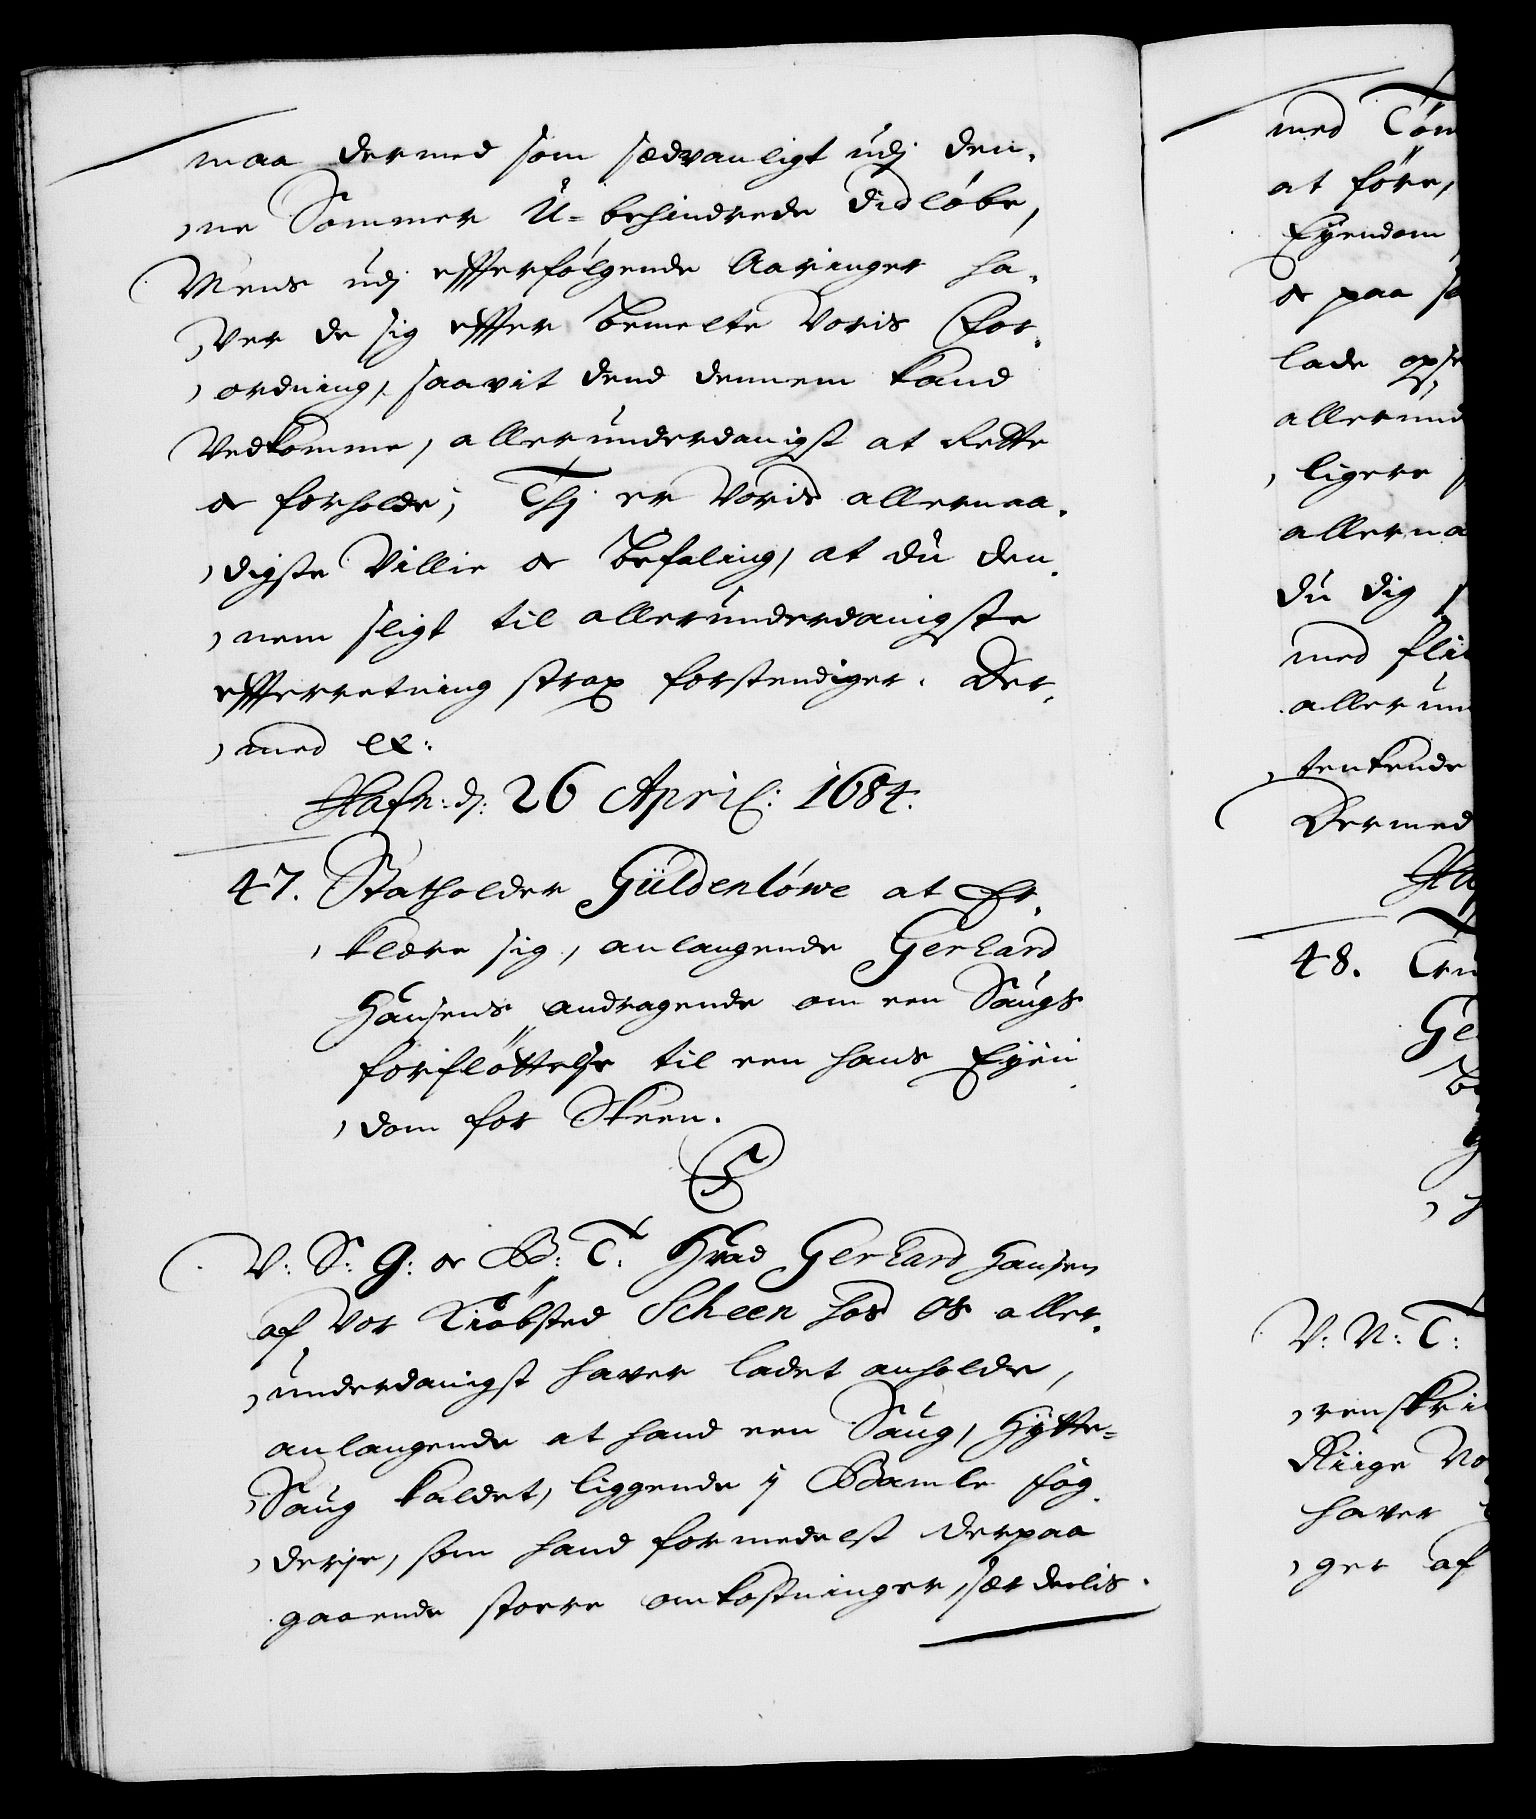 maa dermed som sædvanligt udj den,
ne Sommer U=behindrede didløbe,
Mens udj effterfølgende Aaringer ha,
ver de sig effter bemelte Voris For,
ordning, saavit dend dennem kand
Vedkomme, allerunderdanigst at Rette
oc forholde; Thj er Voris allernaa,
digste Villie oc Befaling, at du den,
nem sligt til allerunderdanigste
effterretning strax forstendiger. Der,
med etc:
Hafn: d: 26 April: 1684.
47. Statholder Güldenløwe at Er,
klære sig, anlangende Gerhard
Hansens andragende om een Saugs
forfløttelse til een hans Eyen
dom for Skeen.
C5
V: S: G: oc B: T: Hvad Gerhard Hansen
af Vor Kiøbsted Scheen hos os aller,
underdanigst haver ladet anholde,
anlangende at hand een Saug, Hytte=
Saug kaldet, liggende y Bamle fog,
derje, som hand formedelst derpaa
gaaende storre omkostninger, sær deelis.
med Tøm
at føre,
Eyendom
oc paa sa
lade opse
allerund
ligere
allerna
du dig
med flii
allerun
tenkende
Dermed
Ha
48.
Ge
V: N: T:
renskri
Riige No
haver
ger af